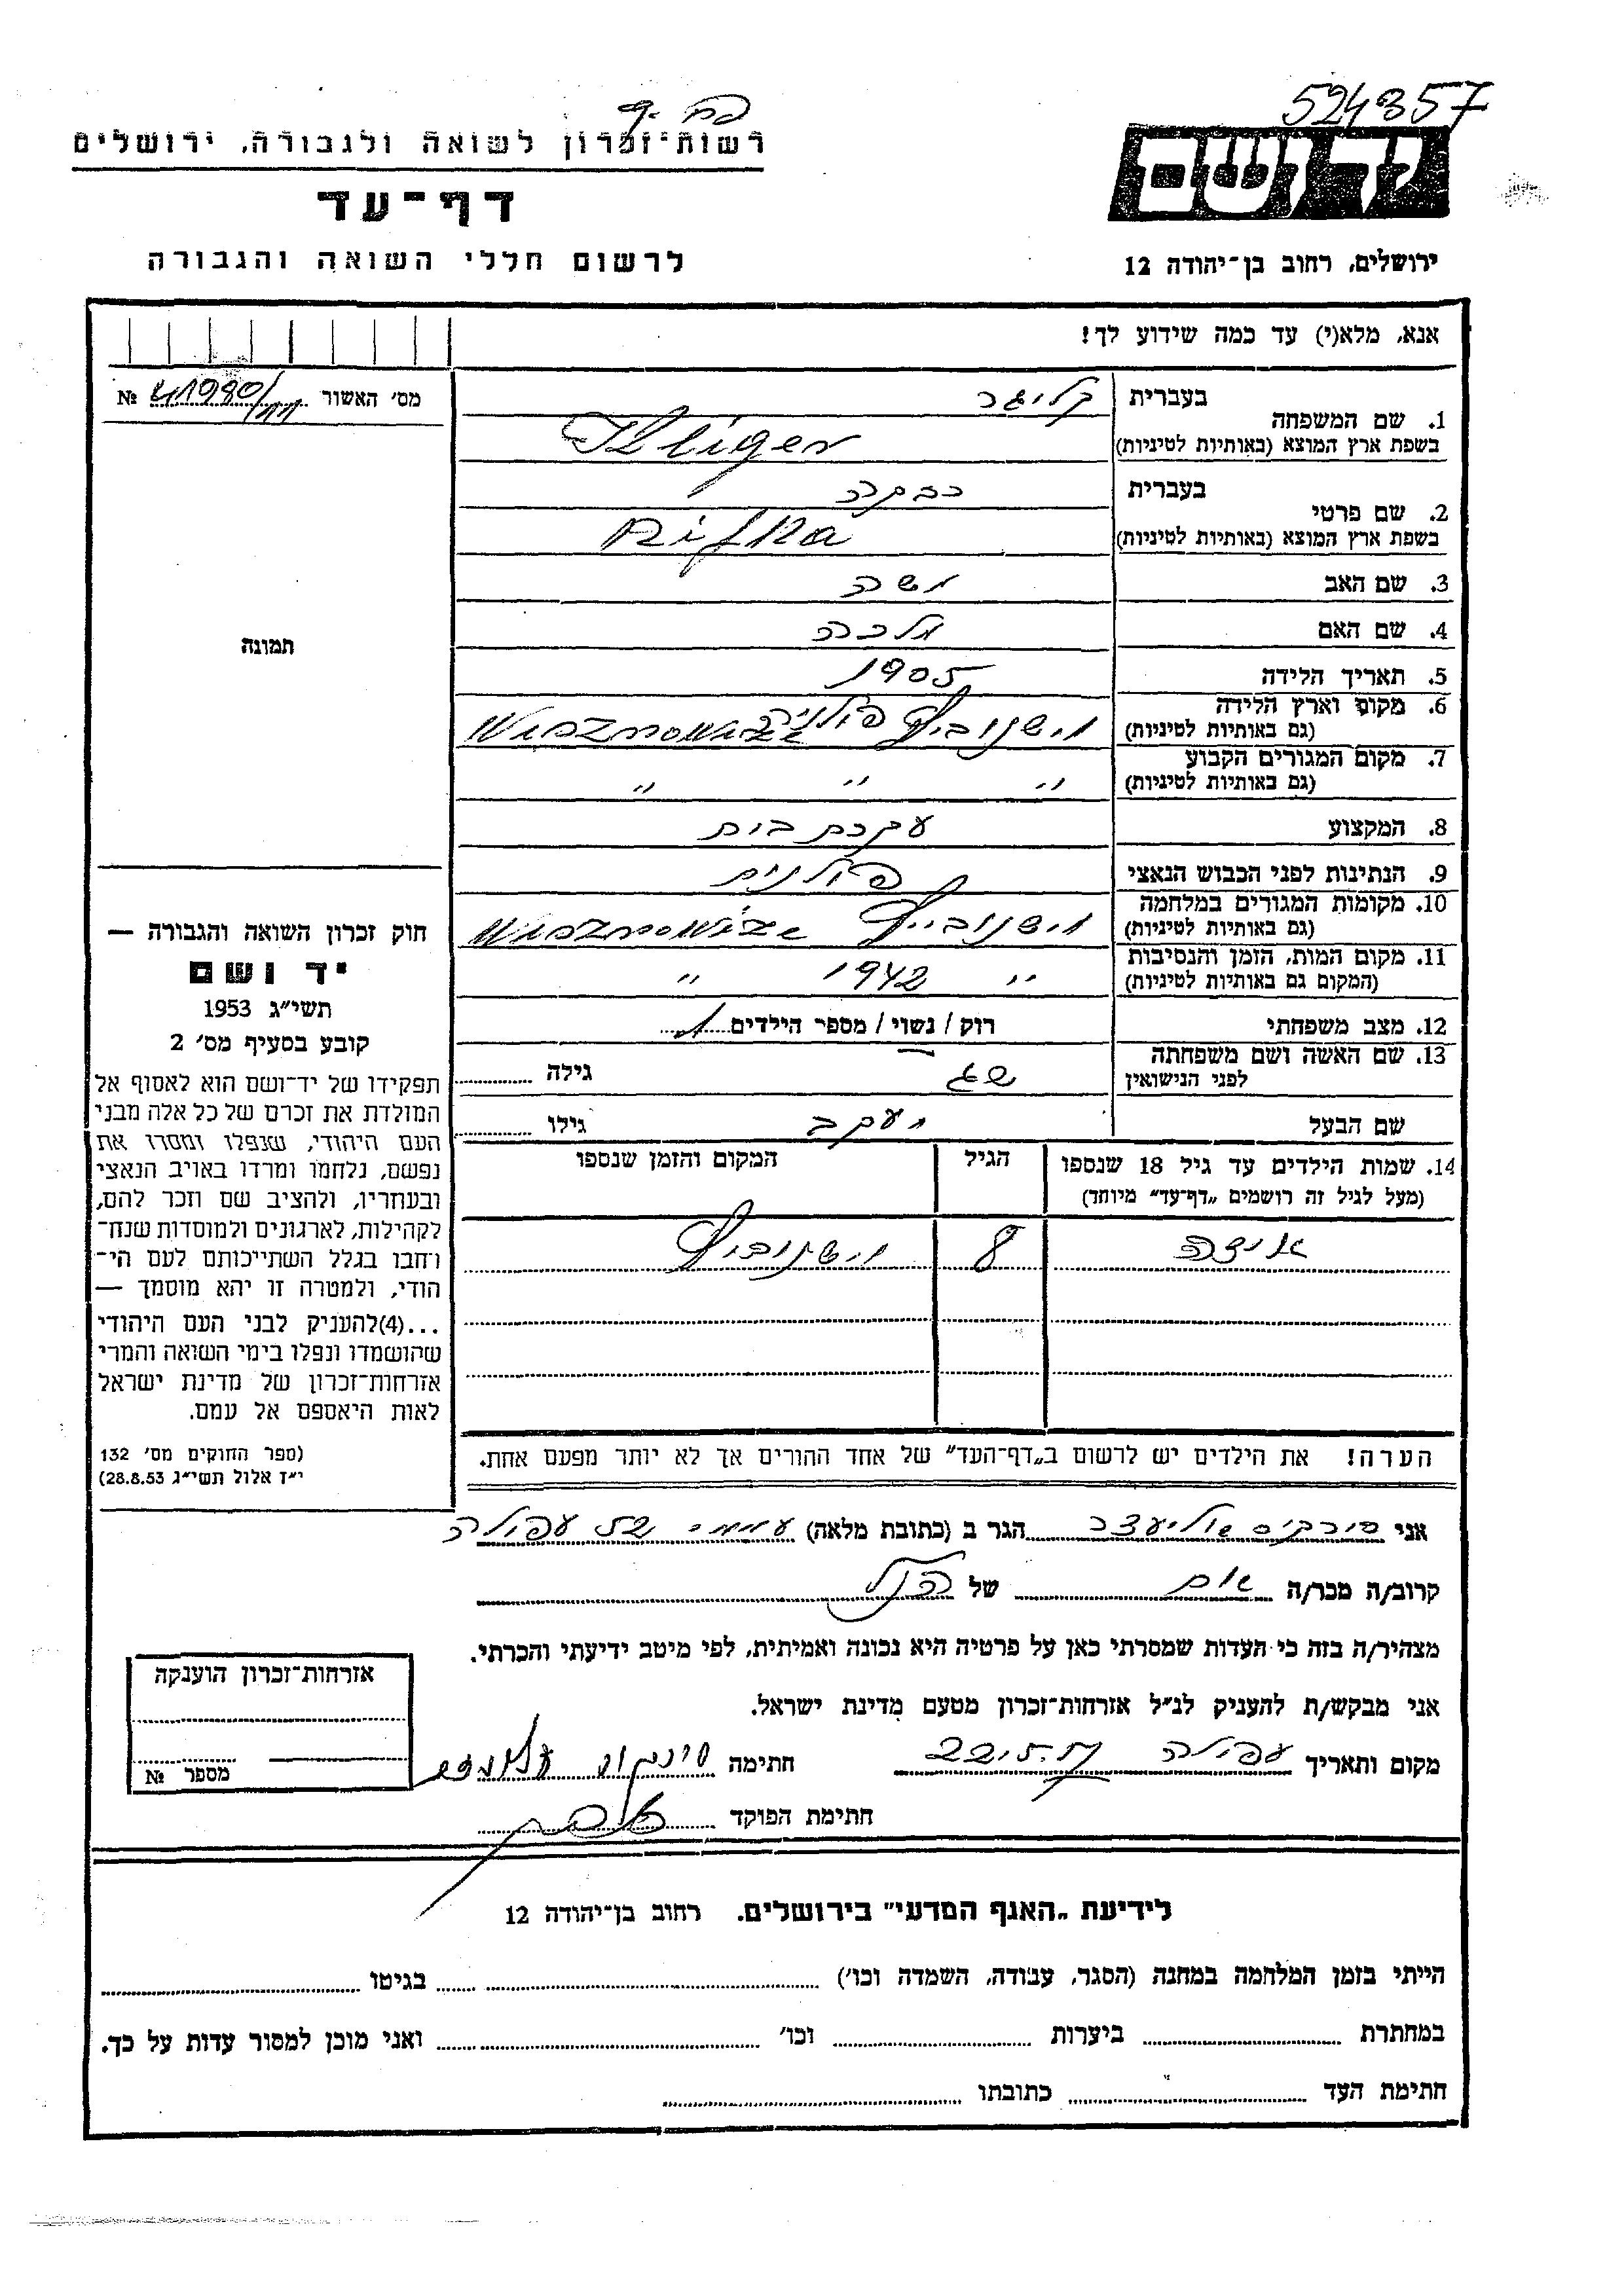 524357
רשות־זכרון לשואה ולגבורה, ירושלים
דף־עד
לרשום חללי השואה והגבורה
ידושם
ירושלים, רחוב בן־יהודה 12
אנא, מלא(י) עד כמה שידוע לך!
מס׳ האשור № 41980/11
1. שם המשפחה
בעברית קליגר
בשפת ארץ המוצא (באותיות לטיניות) Kliger
2. שם פרטי
בעברית רבקה
בשפת ארץ המוצא (באותיות לטיניות) Rifka
3. שם האב משה
4. שם האם מלכה
תמונה
5. תאריך הלידה 1905
6. מקום וארץ הלידה
(גם באותיות לטיניות) וישנוביץ פולניה
7. מקום המגורים הקבוע
(גם באותיות לטיניות) ״ ״ ״
8. המקצוע עקרת בית
9. הנתינות לפני הכבוש הנאצי פולנית
10. מקומות המגורים במלחמה
(גם באותיות לטיניות)
11. מקום המות, הזמן והנסיבות
(המקום גם באותיות לטיניות) ״ 1942 ״
12. מצב משפחתי רוק / נשוי / מספר הילדים 1
13. שם האשה ושם משפחתה
לפני הנישואין גילה
שם הבעל יעקב גילו
14. שמות הילדים עד גיל 18 שנספו הגיל המקום והזמן שנספו
(מעל לגיל זה רושמים „דף־עד״ מיוחד)
8 וישנוביץ
הערה! את הילדים יש לרשום ב„דף־העד״ של אחד ההורים אך לא יותר מפעם אחת.
חוק זכרון השואה והגבורה —
יד ושם
תשי״ג 1953
קובע בסעיף מס׳ 2
תפקידו של יד־ושם הוא לאסוף אל
המולדת את זכרם של כל אלה מבני
העם היהודי, שנפלו ומסרו את
נפשם, נלחמו ומרדו באויב הנאצי
ובעוזריו, ולהציב שם וזכר להם,
לקהילות, לארגונים ולמוסדות שנח־
רחבו בגלל השתייכותם לעם הי־
הודי, ולמטרה זו יהא מוסמך —
...(4)להעניק לבני העם היהודי
שהושמדו ונפלו בימי השואה והמרי
אזרחות־זכרון של מדינת ישראל
לאות היאספם אל עמם.
(ספר החוקים מס׳ 132
י״ז אלול תשי״ג 28.8.53)
אני סירקיס הגר ב (כתובת מלאה) 52 עפולה
קרוב/ה מכר/ה של הנ״ל
מצהיר/ה בזה כי העדות שמסרתי כאן על פרטיה היא נכונה ואמיתית, לפי מיטב ידיעתי והכרתי.
אני מבקש/ת להעניק לנ״ל אזרחות־זכרון מטעם מדינת ישראל.
מקום ותאריך עפולה חתימה
חתימת הפוקד
אזרחות־זכרון הוענקה
מספר №
לידיעת „האגף המדעי״ בירושלים, רחוב בן־יהודה 12
הייתי בזמן המלחמה במחנה (הסגר, עבודה, השמדה וכו׳) בגיטו
במחתרת ביערות וכו׳ ואני מוכן למסור עדות על כך.
חתימת העד כתובתו